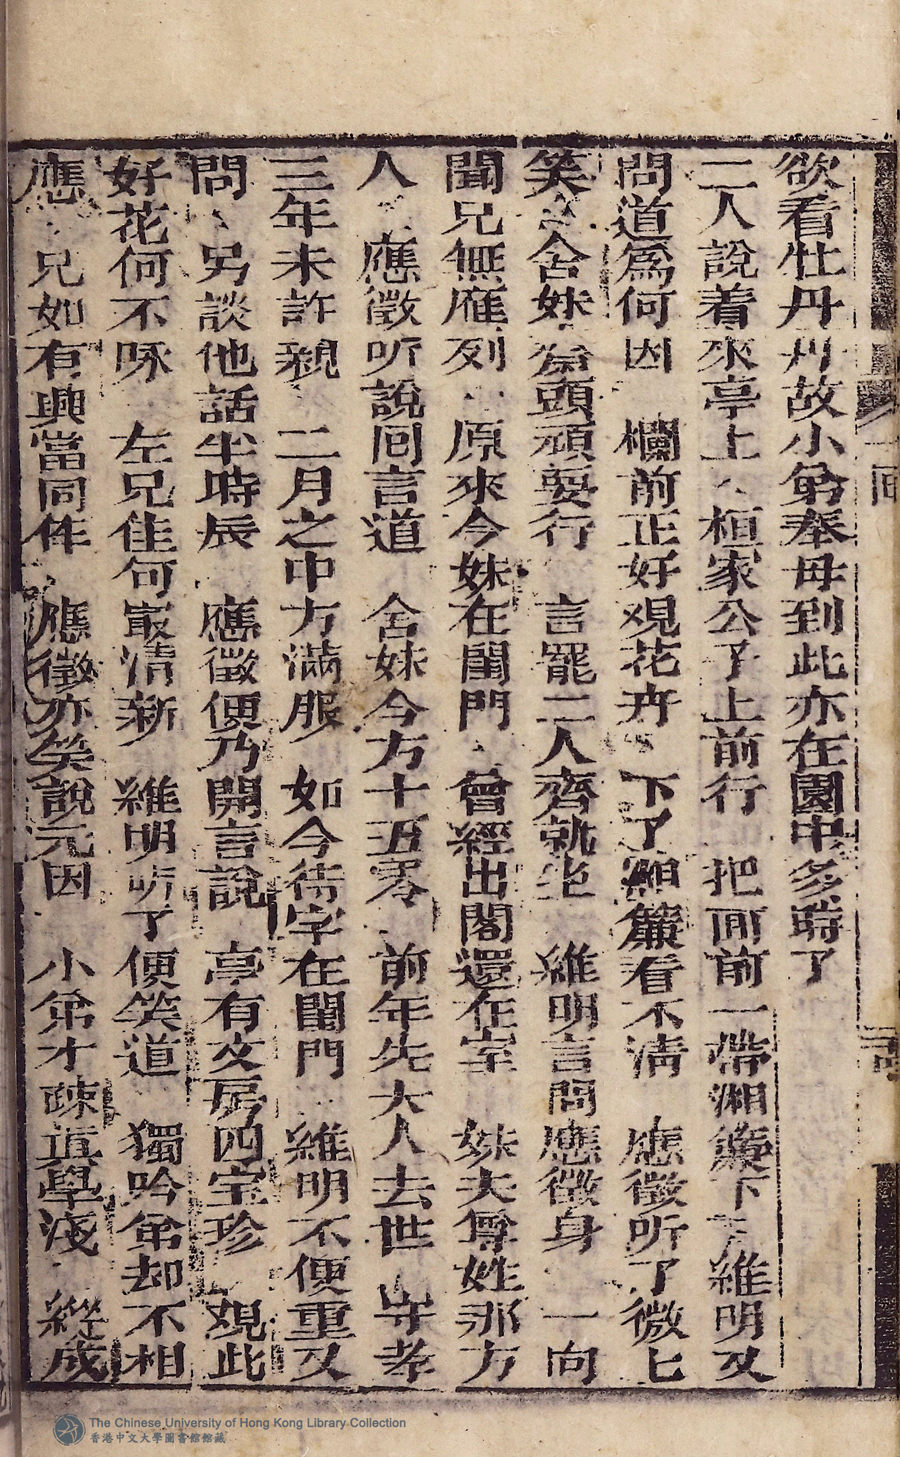 欲看牡丹丹故小弟奉母到此亦在園中多時了
二人說着來亭上 桓家公子上前行 把面前一帶湘簾下了 維明又
問道爲何因 欄前正好观花卉 下了湘簾看不清 應徵听了微匕
笑 舍妹當頭頑耍行 言罷二人齊就坐 維明言問應徵身 一向
聞兄無雁列 原來今妹在閨門 曾經出閣還在室 妹夫尊姓那方
人 應徵听說囘言道 舍妹今方十五零 前年先大人去世 守孝
三年未許親 二月之中方滿服 如今待字在閨門 維明不便重又
問 另談他話半時辰 應徵便乃開言說 亭有文房四宝珍 覌此
好花何不咏 左兄佳句最清新 維明听了便笑道 獨吟弟却不相
應 兄如有興當同伴 應徵亦笑說元因 小弟才疎真學淺 縱成
一回
The Chinese University of Hong Kong Library Collection
香港中文大學圖書館館藏